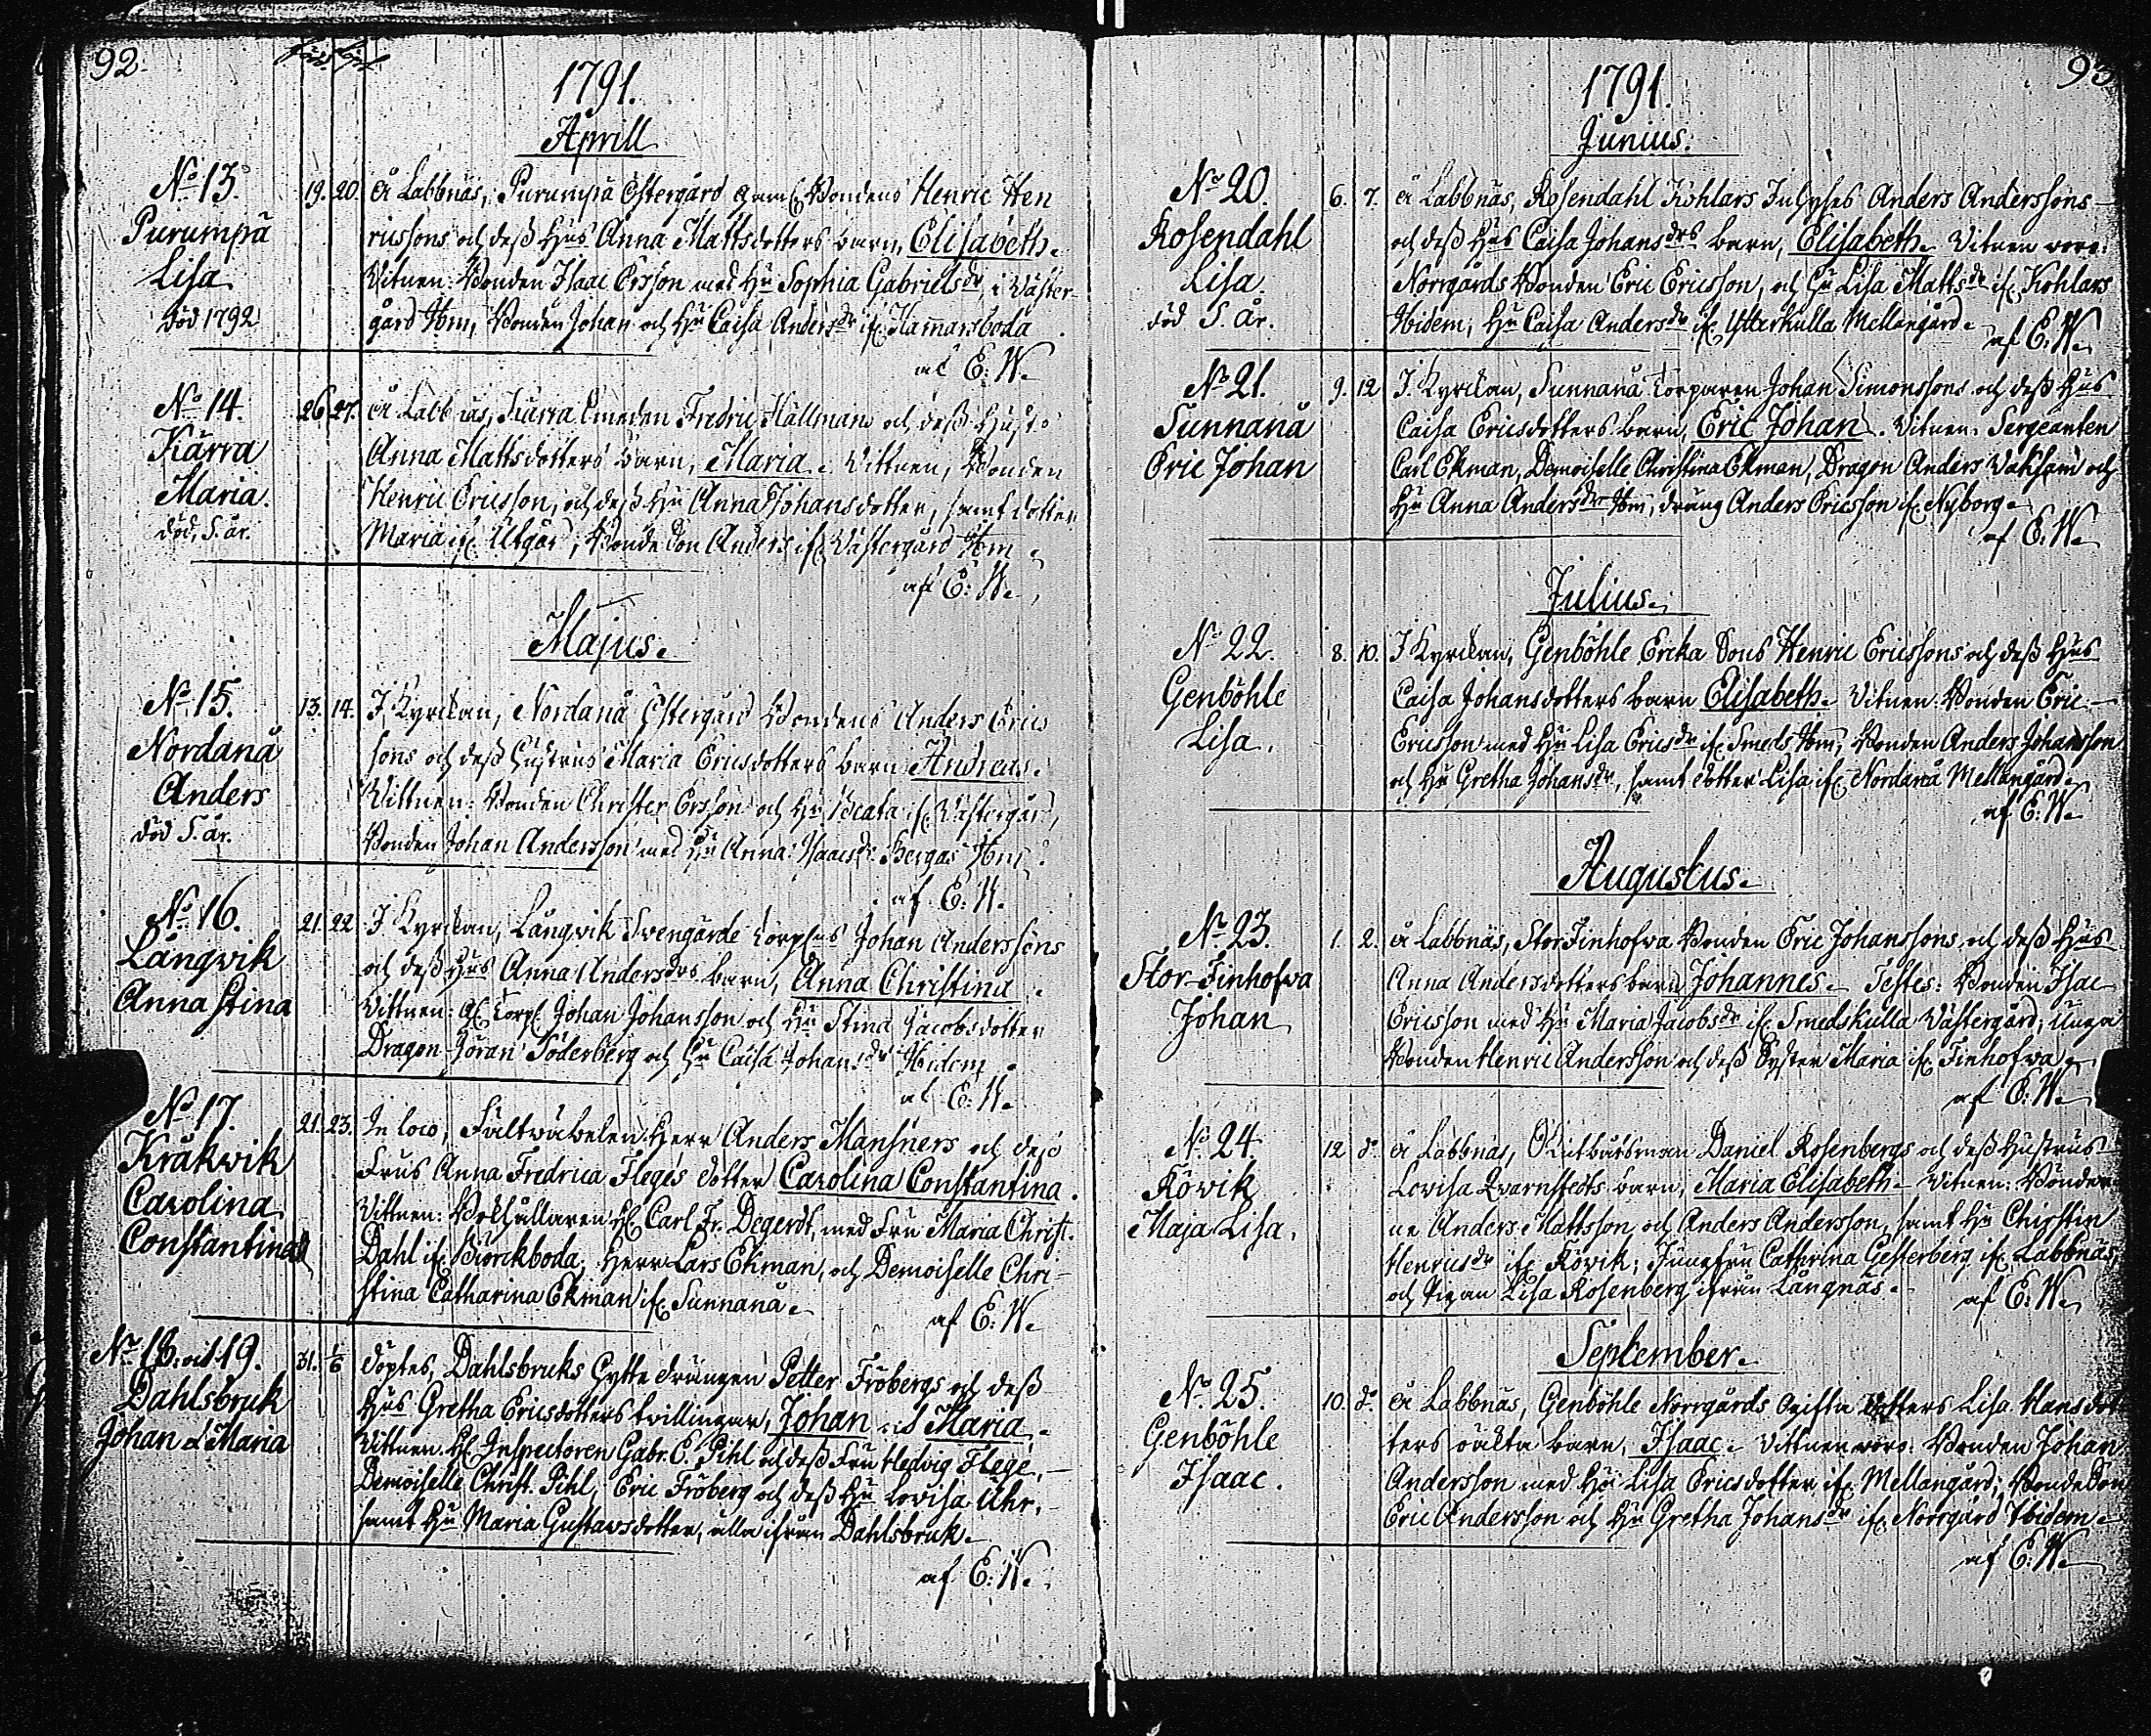 92.
1791.
Aprill
No 13.
Purumpä
Lisa
död 1792
19. 20. å Labbnäs, Purumpä Östergård Bondens Henric Hen
ricssons och dess Hus Anna Mattsdotters barn, Elisabeth.
Vitnen: Bonden Isaac Ersson med Hu Sophia Gabrielsdr, i Väster-
gård Ibm, Bonden Johan och Hu Caisa Andersdr ifr. Hammarsboda
af E. W.
No 14.
Kärra
Maria.
död, S. år.
26. 27. å Labbnäs, Kärra Smeden Fredric Hällmans och dess Hust:
Anna Mattsdotters barn, Maria. Vittnen, Bonden
Henric Ericsson, och dess Hu Anna Johansdotter, samt dotter
Maria ifr. Utgår, Bonde Son Anders ifr. Västergård Ibm.
af E: W.
Majus.
No 15.
Nordanå
Anders
död S. år.
13. 14. I Kyrckan, Nordanå Östergård Bondens Anders Erics
sons och dess Hustrus Maria Ericsdotters barn Andreas.
Vittnen: Bonden Christer Ersson och Hu Beata ifr. Västergård,
Bonden Johan Andersson med Hu Anna Isaacsdr Bergas Ibm.
af E. W.
No 16.
Långvik
Anna Stina
21. 22 I Kyrckan, Långvik Svengårde Torp. Johan Anderssons
och dess Hus Anna Andersdrs barn, Anna Christina.
Vittnen: Torp. Johan Johansson och Hu Stina Jacobsdotter
Dragon Jöran Söderberg och Hu Caisa Johansdr Ibidem
af E. W.
No 17.
Kråkvik
Carolina
Constantina
21. 23. In loco, Fältväbelen Herr Anders Mansners och dess
Frus Anna Fredrica Fleges dotter Carolina Constantina.
Vittnen: Bokhållaren H. Carl Fr. Degerdt, med Fru Maria Christ.
Dahl ifr. Biörckboda, Herr Lars Ekman, och Demoiselle Chri-
stina Catharina Ekman ifr. Sunnanå.
af E: W.
No 18. och 19.
Dahlsbruk
Johan o Maria
31. 1/6 döptes, Dahlsbruks Hytte drängen Petter Fröbergs och dess
Hus Gretha Ericsdotters tvillingar, Johan och Maria.
Vittnen. H. Inspectoren Gabr. E. Pihl och dess Fru Hedvig Flege,
Demoiselle Christ. Pihl, Eric Fröberg och dess Hu Lovisa Uhr,
samt Hu Maria Gustavsdotter, alla ifrån Dahlsbruk.
af E: W.
93
1791.
Junius.
No 20.
Rosendahl
Lisa.
död S. år.
6. 7. å Labbnäs, Rosendahl Kohlars Inhyses Anders Anderssons
och dess Hus Caisa Johansdrs barn, Elisabeth. Vitnen voro:
Norrgårds Bonden Eric Ericsson, och Hu Lisa Mattsdr ifr. Kohlars
Ibidem, Hu Caisa Andersdr ifr. Ytterkulla Mellangård.
af E. W.
No 21.
Sunnanå
Eric Johan
9. 12 I Kyrckan, Sunnanå Torparen Johan Simonssons och dess Hus
Caisa Ericsdotters barn, Eric Johan. Vitnen. Sergeanten
Carl Ekman, Demoiselle Christina Ekman, Dragon Anders Vaksam och
Hu Anna Andersdr Ibm, dräng Anders Ericsson ifr. Nyborg.
af E. W.
Julius.
No 22.
Genböhle
Lisa.
8. 10. I Kyrckan, Genböhle Ericka Sons Henric Ericssons och dess Hus
Caisa Johansdotters barn Elisabeth. Vitnen: Bonden Eric
Ericsson med Hu Lisa Ericsdr ifr. Smeds Ibm, Bonden Anders Johansson
och Hu Gretha Johansdr, samt dotter Lisa ifr. Nordanå Mellangård.
af E. W.
Augustus.
No 23.
Stor-Finhofva
Johan
1. 2. å Labbnäs, Stor Finhofva Bonden Eric Johanssons och dess Hus
Anna Andersdotters barn Johannes. Testes: Bonden Isac
Ericsson med Hu Maria Jacobsdr ifr. Smedskulla Västergård; unga
Bonden Henric Andersson och dess Syster Maria ifr. Finhofva.
af E. W.
No 24.
Rövik
Maja Lisa.
12 do å Labbnäs, Daniel Rosenbergs och dess Hustrus
Lovisa Qvarnstedts barn, Maria Elisabeth. Vitnen: Bönder-
ne Anders Mattsson och Anders Andersson, samt Hu Christin
Henricsdr ifr. Rövik; Jungfru Cathrina Gesterberg ifr. Labbnäs,
och Pigan Lisa Rosenberg ifrån Långnäs.
af E: W.
September.
No 25.
Genböhle
Isaac.
10. do å Labbnäs, Genböhle Norrgårds ogifta dotters Lisa Hansdot
ters oäkta barn, Isaac. Vittnen voro: Bonden Johan
Andersson med Hu Lisa Ericsdotter ifr. Mellangård; Bonde Son
Eric Andersson och Hu Gretha Johansdr ifr. Norrgård Ibidem.
af E: W.